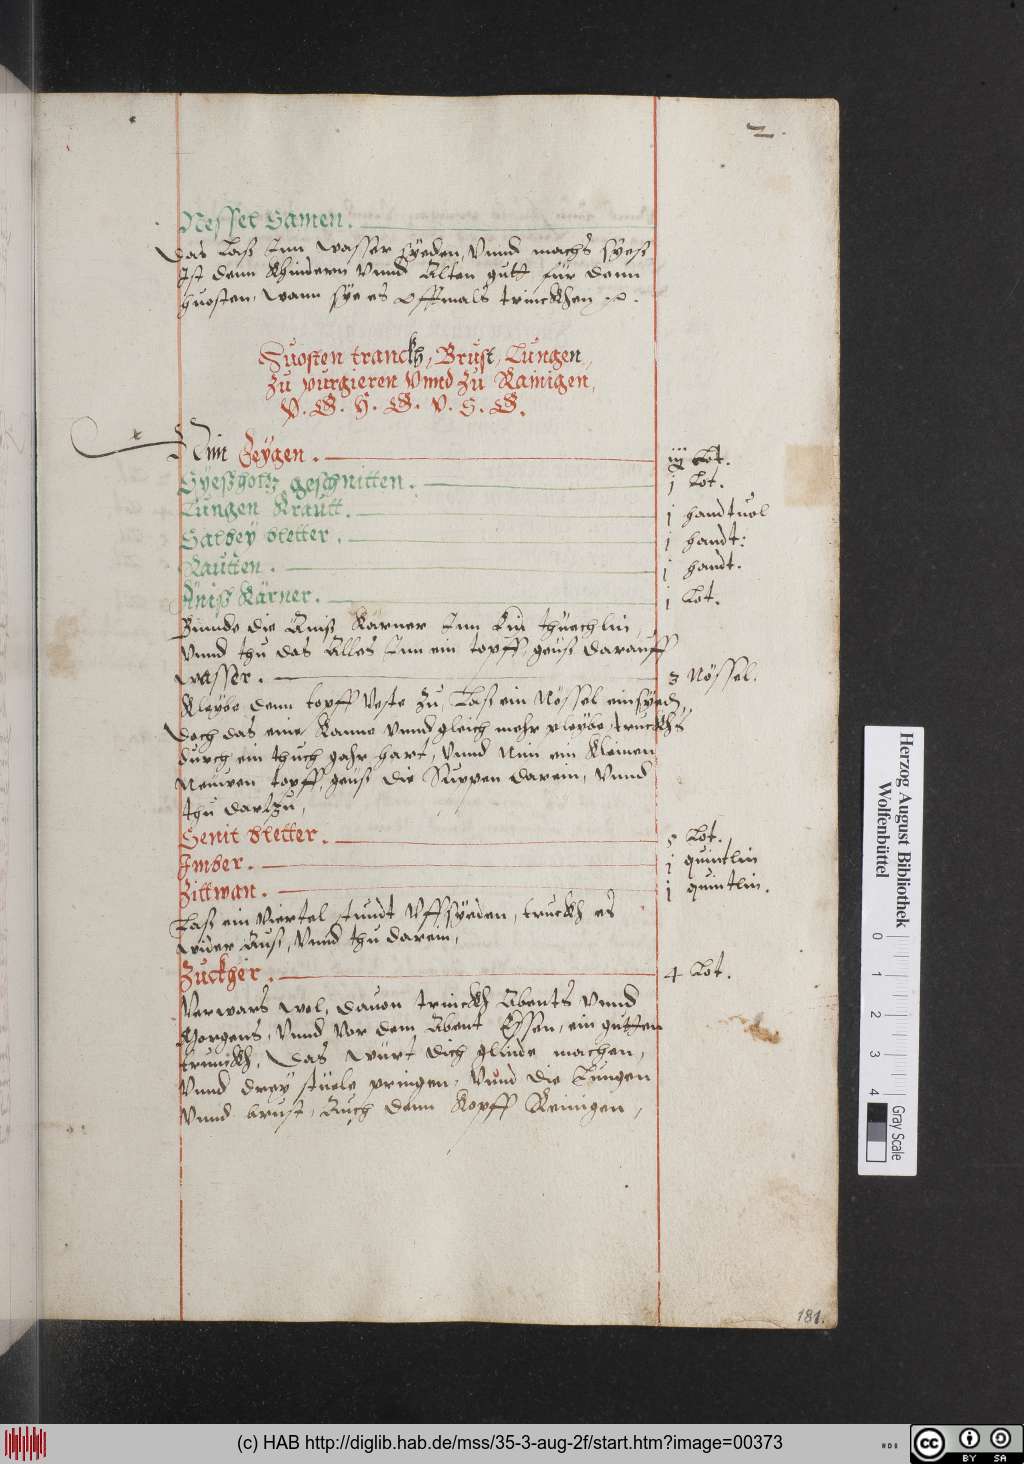 2.
Nessel Samen.
Das Laß Inn Wasser syeden, Vnnd machs syeß
Ist denn Khindern Vnnd Alten gutt für denn
huosten, wann sye es offtmals trinckhen
Huosten tranckh, Brust, Lungen,
Zu purgieren Vnnd Zu Rainigen,
V. G. H. G. V. S. G.
Nim Feygen. iij Lot.
Syeßholtz geschnitten. j Lot.
Lungen Krautt. j handtuol
Salbey bletter. j handt:
Rautten. j handt.
Äniß Kärner. j Lot.
Binnde die Äniß Kärner Inn Ein thuechlin,
Vnnd thu das Alles Inn ein topff, geuß darauff
Wasser. 3 Nössel.
Kleybe denn topff Veste Zu, Laß ein Nössel einsyed,
doch das eine Kanne Vnnd gleich mehr pleybe, truckhs
durch ein thuch gahr hart, Vnnd Nim ein Kleinen
Neuwen topff, geuß die Suppen darein, Vnnd
thu dartzu,
Senit bletter. 3 Lot.
Imber. j quintlin
Zittwan. j quintlin.
Laß ein Viertel stundt Vffsyeden, truckh es
wider Auß, Vnnd thu darein,
Zuckher. 4 Lot.
Verwars wol, dauon trinckh Abents Vnnd
Morgens, Vnnd Vor dem Abent Essen, ein gutten
trunckh, Das würt dich glinde machen,
Vnnd drey stüele pringen, Vnnd die Lungen
Vnnd brust, Auch denn Kopff Reinigen,
181.
Herzog August Bibliothek
Wolfenbüttel
0 1 2 3 4
Gray Scale
(c) HAB http://diglib.hab.de/mss/35-3-aug-2f/start.htm?image=00373
cc BY SA